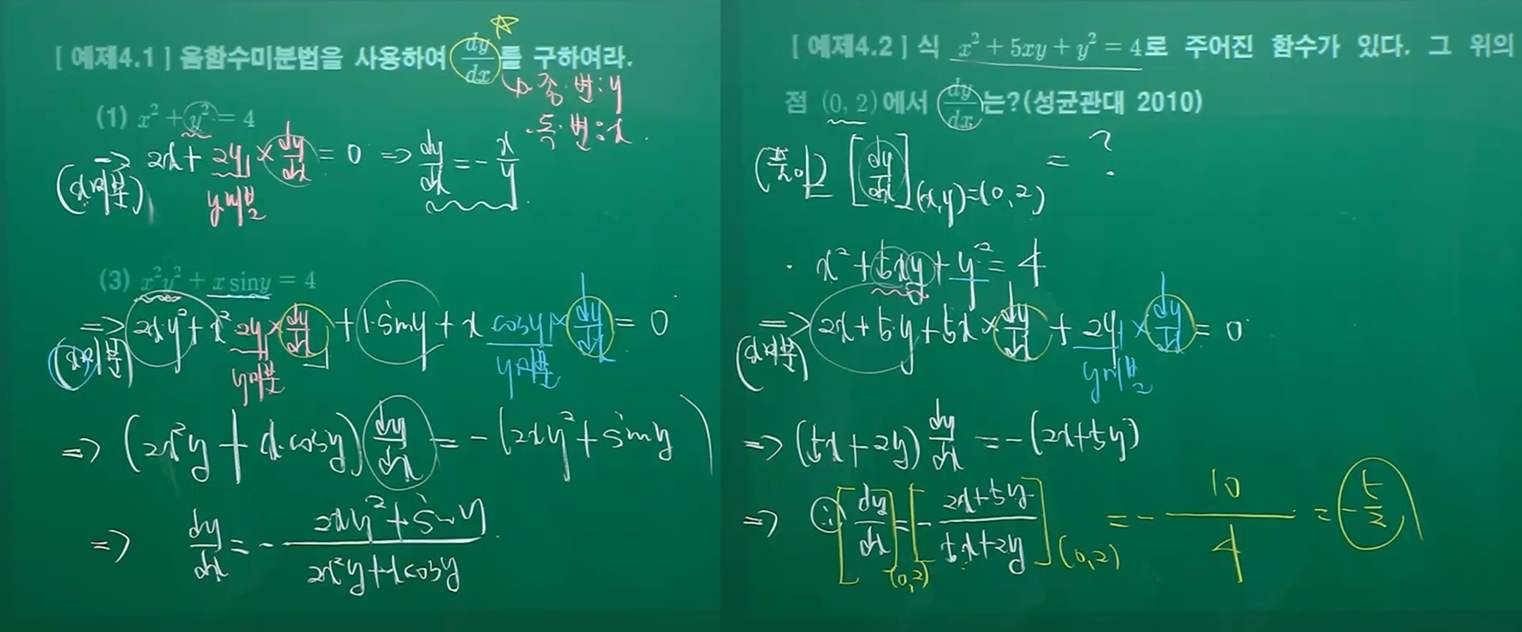 [ 예제4.1 ] 음함수미분법을 사용하여 dy/dx 를 구하여라.
↳ 종·변 : y
· 독·변 : x
(1) x² + y² = 4
=> 2x + 2y × dy/dx = 0 => dy/dx = - x/y
(x에 대해 미분)
y미분
(3) x²y² + x siny = 4
=> 2xy² + x² 2y × dy/dx + 1·siny + x cosy × dy/dx = 0
y미분 y미분
=> (2x²y + x·cosy) dy/dx = -(2xy² + siny)
=> dy/dx = - (2xy² + siny)/(2x²y + xcosy)
[ 예제4.2 ] 식 x² + 5xy + y² = 4로 주어진 함수가 있다. 그 위의
점 (0, 2)에서 dy/dx 는?(성균관대 2010)
(풀이) [dy/dx](x,y)=(0,2) = ?
· x² + 5xy + y² = 4
=> 2x + 5·y + 5x × dy/dx + 2y × dy/dx = 0
y미분
=> (5x + 2y) dy/dx = -(2x + 5y)
=> ∴ [dy/dx](0,2) = [- (2x + 5y)/(5x + 2y)](0,2) = - 10/4 = - 5/2